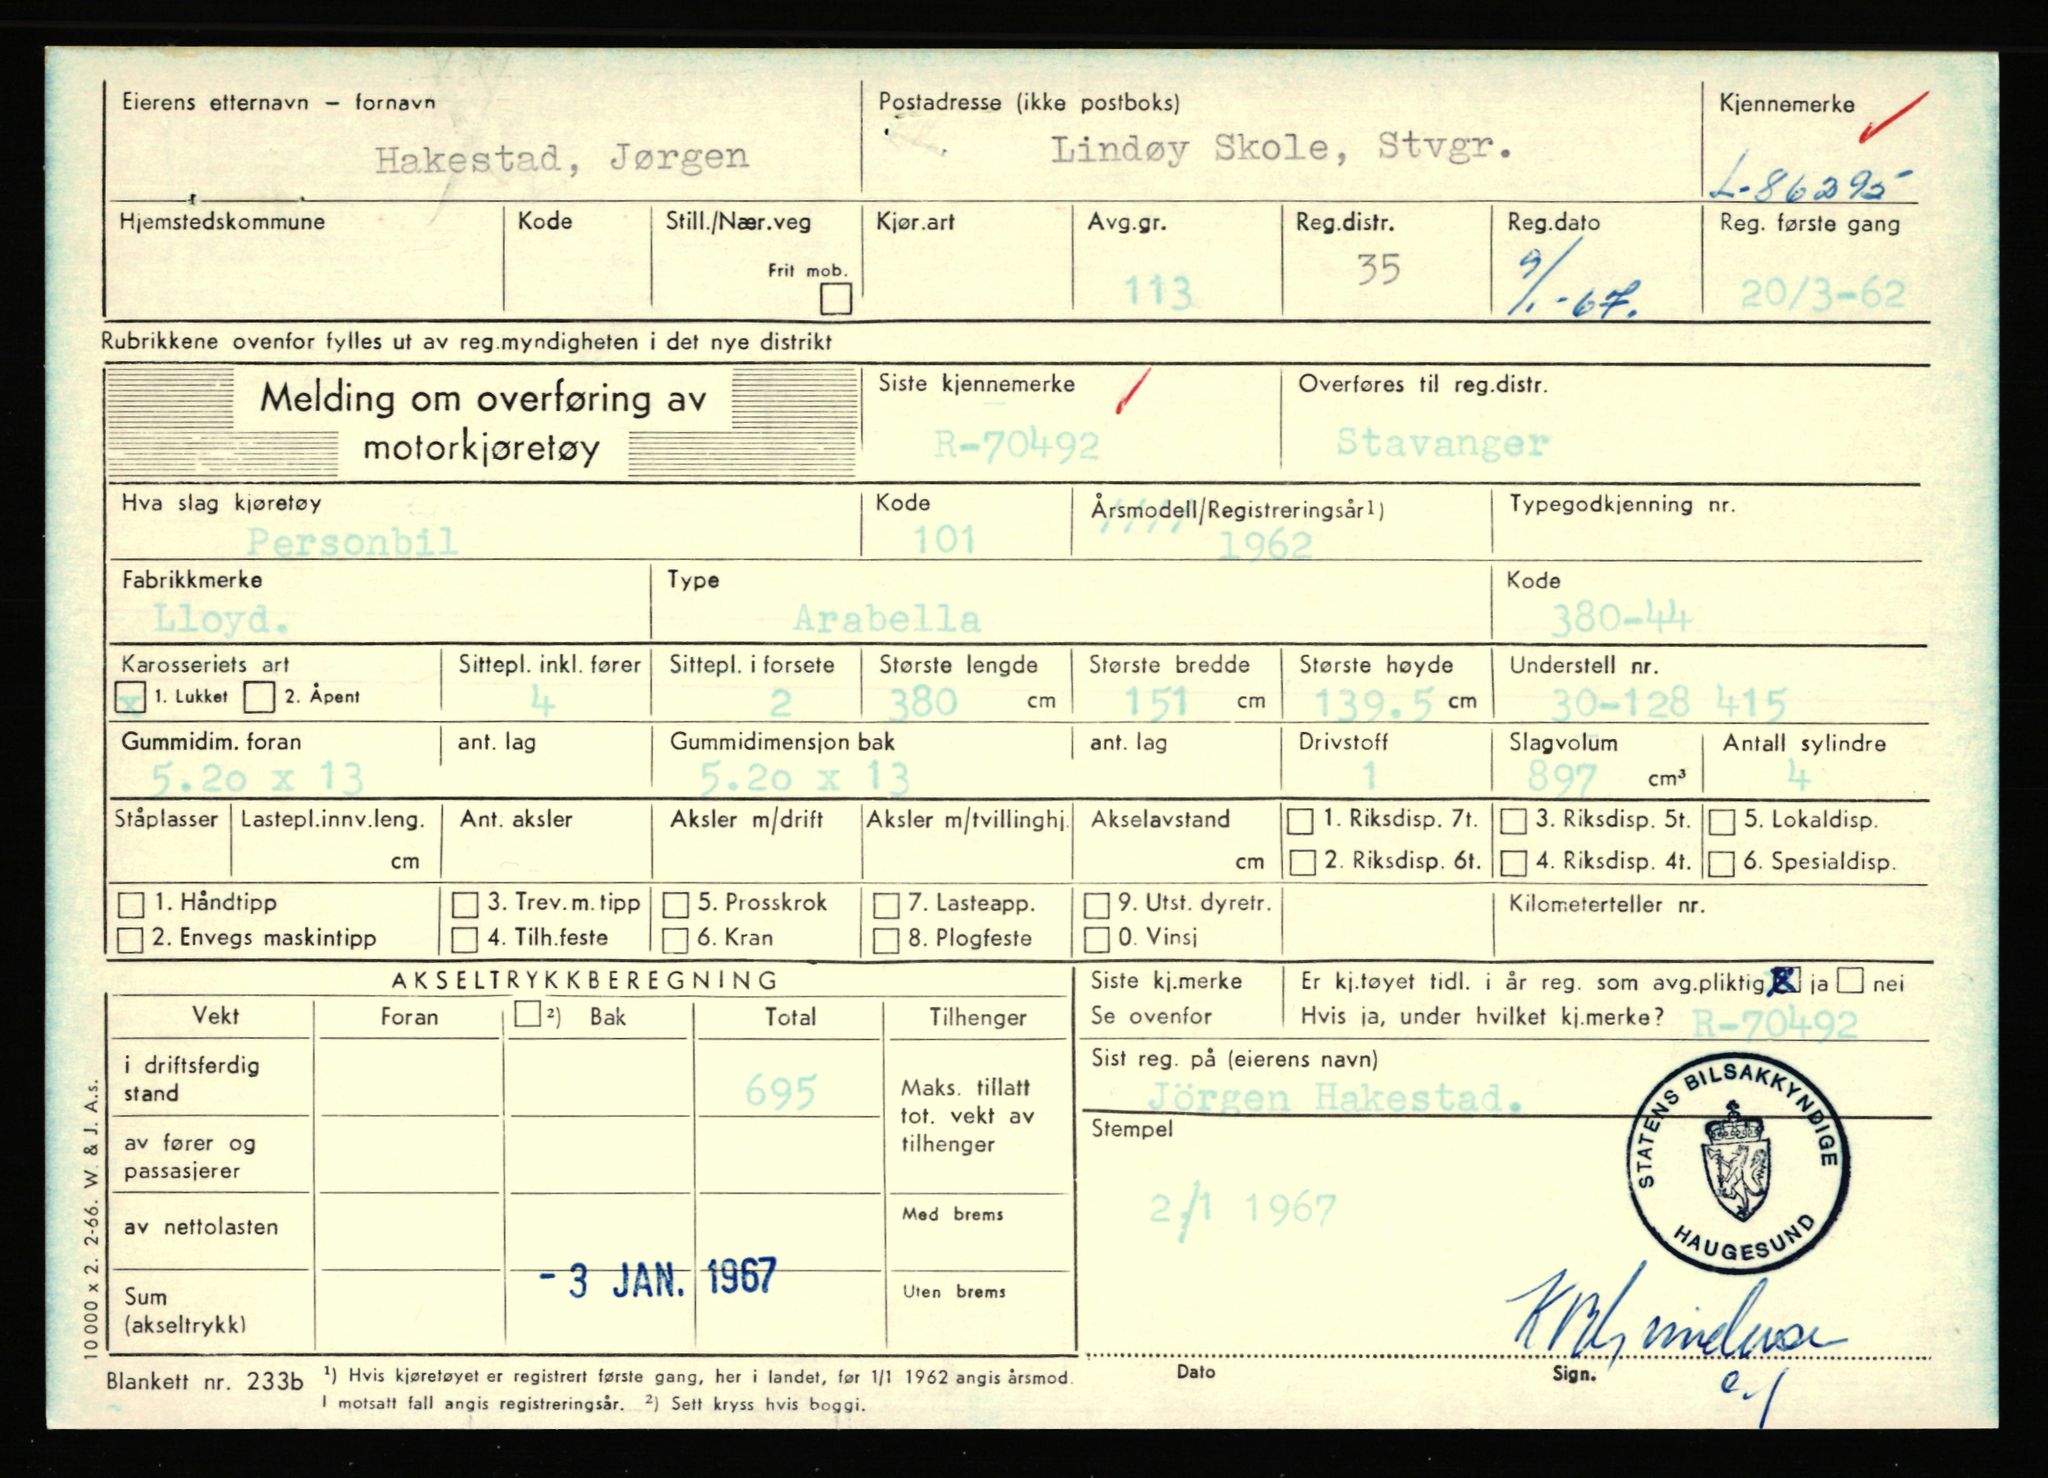 Eierens etternavn – fornavn
Hakestad, Jørgen
Postadresse (ikke postboks)
Lindøy Skole, Stvgr.
Kjennemerke
L-86295
Hjemstedskommune
Kode
Still./Nær.veg
Frit mob.
Kjør.art
Avg.gr.
113
Reg.distr.
35
Reg.dato
9/1-67.
Reg. første gang
20/3-62
Rubrikkene ovenfor fylles ut av reg.myndigheten i det nye distrikt
Melding om overføring av
motorkjøretøy
Siste kjennemerke
R-70492
Overføres til reg.distr.
Stavanger
Hva slag kjøretøy
Personbil
Kode
101
Årsmodell/Registreringsår1)
1962
Typegodkjenning nr.
Fabrikkmerke
Lloyd.
Type
Arabella
Kode
380-44
Karosseriets art
x 1. Lukket 2. Åpent
Sittepl. inkl. fører
4
Sittepl. i forsete
2
Største lengde
380 cm
Største bredde
151 cm
Største høyde
139.5 cm
Understell nr.
30-128 415
Gummidim. foran
5.20 x 13
ant. lag
Gummidimensjon bak
5.20 x 13
ant. lag
Drivstoff
1
Slagvolum
897 cm³
Antall sylindre
4
Ståplasser
Lastepl.innv.leng.
cm
Ant. aksler
Aksler m/drift
Aksler m/tvillinghj.
Akselavstand
cm
1. Riksdisp. 7t.
2. Riksdisp. 6t.
3. Riksdisp. 5t.
4. Riksdisp. 4t.
5. Lokaldisp.
6. Spesialdisp.
1. Håndtipp
2. Envegs maskintipp
3. Trev.m.tipp
4. Tilh.feste
5. Prosskrok
6. Kran
7. Lasteapp.
8. Plogfeste
9. Utst. dyretr.
0. Vinsj
Kilometerteller nr.
AKSELTRYKKBEREGNING
Vekt
Foran
2) Bak
Total
Tilhenger
i driftsferdig
stand
695
Maks. tillatt
tot. vekt av
tilhenger
av fører og
passasjerer
av nettolasten
Med brems
Sum
(akseltrykk)
Uten brems
- 3 JAN. 1967
Siste kj.merke
Se ovenfor
Er kj.tøyet tidl. i år reg. som avg.pliktig x ja nei
Hvis ja, under hvilket kj.merke? R-70492
Sist reg. på (eierens navn)
Jörgen Hakestad.
Stempel
2/1 1967
STATENS BILSAKKYNDIGE
HAUGESUND
Dato
Sign.
10 000 x 2. 2-66. W. & J. A.s.
Blankett nr. 233b
1) Hvis kjøretøyet er registrert første gang, her i landet, før 1/1 1962 angis årsmod.
I motsatt fall angis registreringsår. 2) Sett kryss hvis boggi.